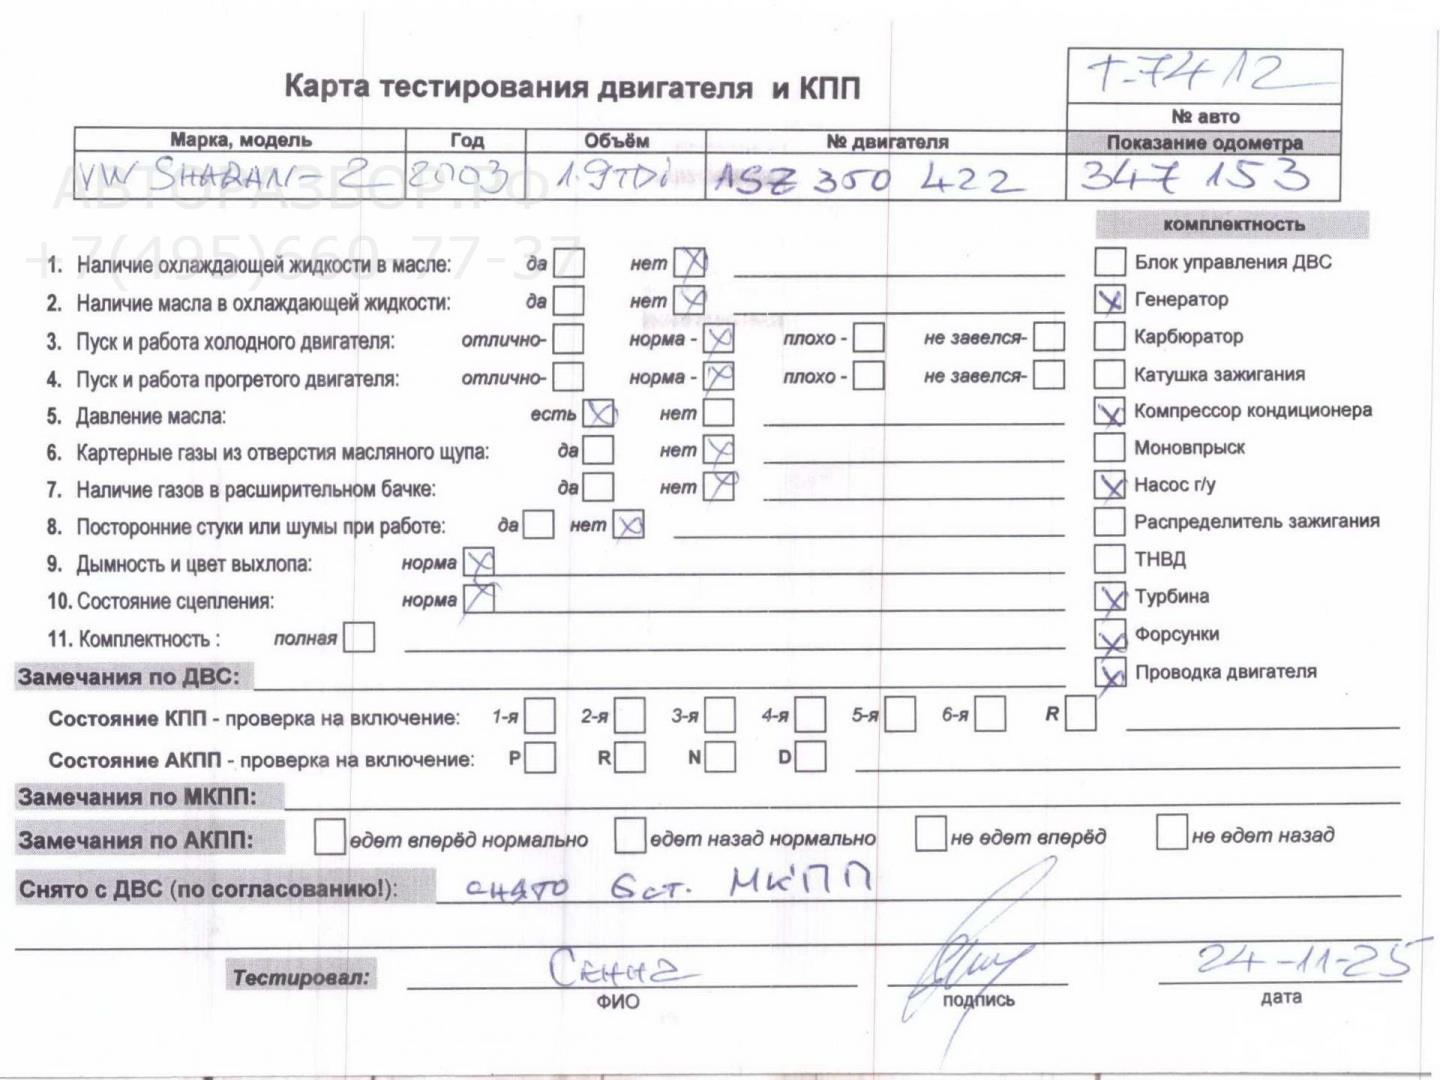 Т-7412
Карта тестирования двигателя и КПП
№ авто
Марка, модель Год Объём № двигателя Показание одометра
VW SHARAN-2 2003 1.9TDi ASZ 350 422 347 153
АВТОРАЗБОР.РФ
+7(495)660-77-37
комплектность
1. Наличие охлаждающей жидкости в масле: да нет X Блок управления ДВС
2. Наличие масла в охлаждающей жидкости: да нет X X Генератор
3. Пуск и работа холодного двигателя: отлично- норма - X плохо - не завелся- Карбюратор
4. Пуск и работа прогретого двигателя: отлично- норма - X плохо - не завелся- Катушка зажигания
5. Давление масла: есть X нет X Компрессор кондиционера
6. Картерные газы из отверстия масляного щупа: да нет X Моновпрыск
7. Наличие газов в расширительном бачке: да нет X X Насос г/у
8. Посторонние стуки или шумы при работе: да нет X Распределитель зажигания
9. Дымность и цвет выхлопа: норма X ТНВД
10. Состояние сцепления: норма X X Турбина
11. Комплектность : полная X Форсунки
Замечания по ДВС: X Проводка двигателя
Состояние КПП - проверка на включение: 1-я 2-я 3-я 4-я 5-я 6-я R
Состояние АКПП - проверка на включение: P R N D
Замечания по МКПП:
Замечания по АКПП: едет вперёд нормально едет назад нормально не едет вперёд не едет назад
Снято с ДВС (по согласованию!): снято 6ст. МКПП
Тестировал: 24-11-25
ФИО подпись дата